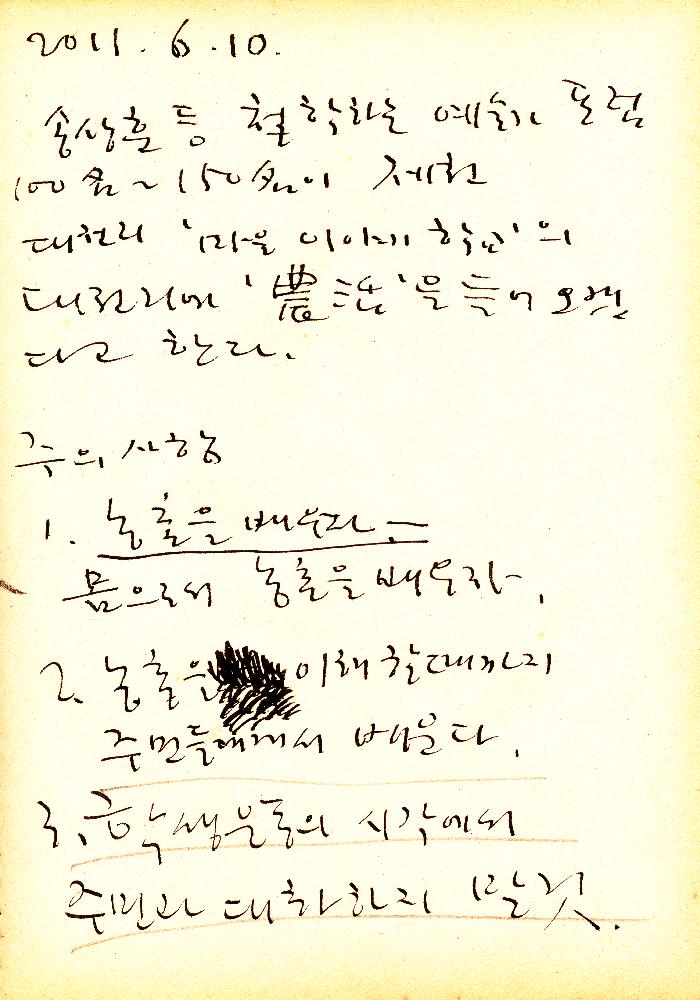 2011. 6. 10.
송상훈 등 철학하는 예술가 포럼
100명~150명이 제천
대전리 '마을 이야기 학교'의
대전리에 '農活'을 들어 오겠
다고 한다.
주의 사항
1. 농활을 배우다 =
몸으로서 농활을 배우자.
2. 농활을 이해 할때까지
주민들에게서 배운다.
3. 학생운동의 시각에서
주민과 대화하지 말것.